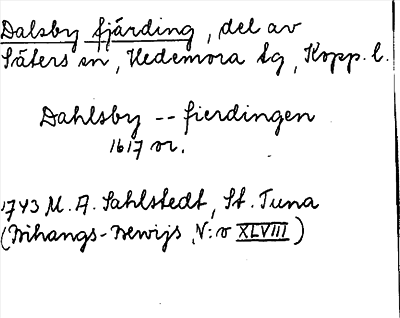 Dalsby fjärding, del av
Säters sn, Hedemora tg, Kopp. l.
Dahlsby -- fierdingen
1617 or.
1743 M. A. Sahlstedt, St. Tuna
(Bihangs-Bewijs, N:o XLVIII)